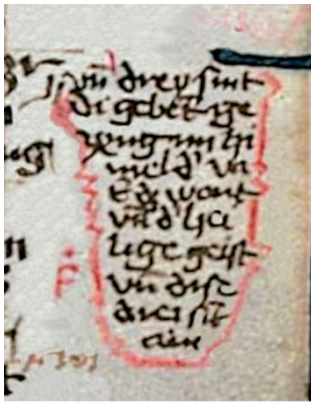 vn̄ drey sint
di gebēt ge
zeug im hi
mel d' va
t' dz wort
vn̄ d' hei
lige geist
vn̄ dise
drei sīt
ain